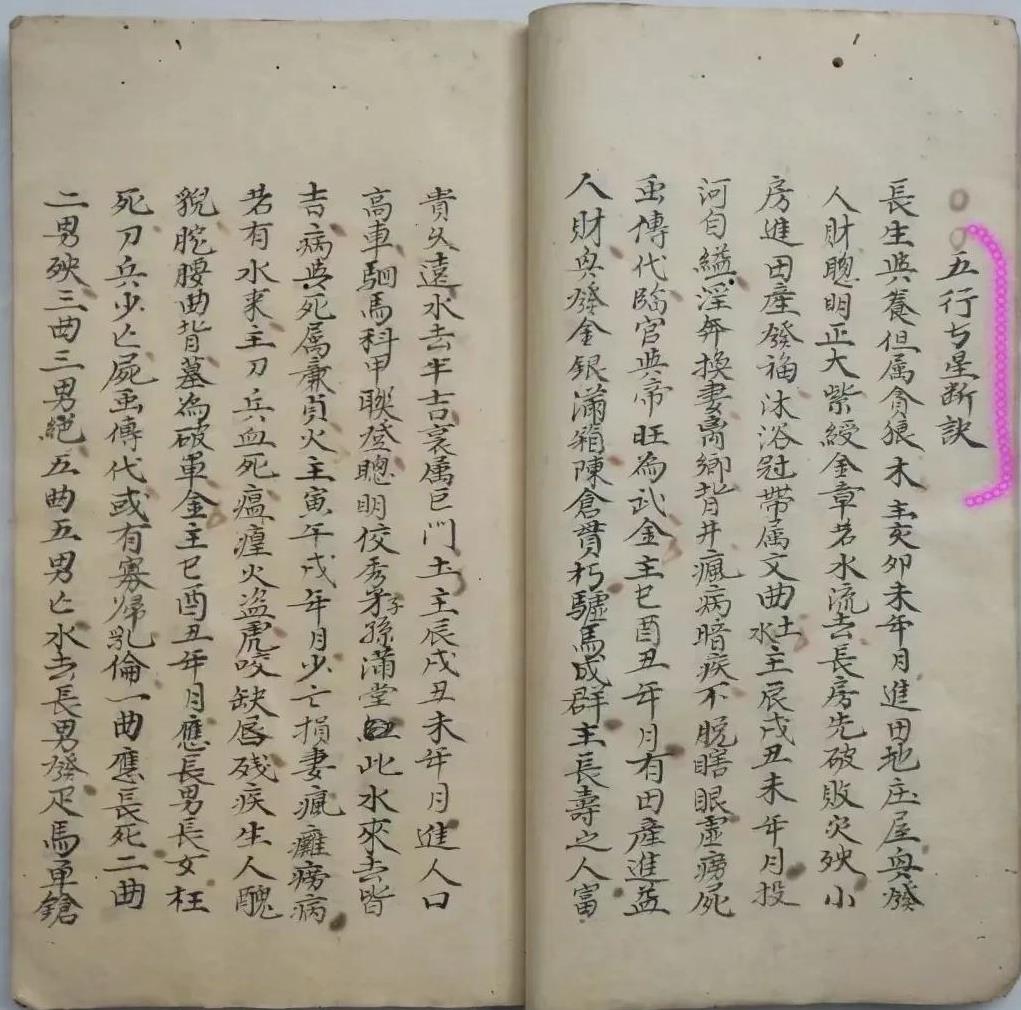 五行七星断訣
長生與養但属貪狼木主亥卯未年月進田地庄屋與發
人財聰明正大紫綬金章若水流去長房先破敗灾殃小
房進田産發福沐浴冠帶属文曲水土主辰戌丑未年月投
河自縊淫奔換妻离鄉背井瘋病暗疾不脫瞎眼虛癆死
虫傳代臨官與帝旺為武金主巳酉丑年月有田產進益
人財與發金銀滿箱陳倉貫朽驢馬成群主長壽之人富
貴久遠水去半吉衰属巨門土主辰戌丑未年月進人口
高車駟馬科甲聯登聰明俊秀子孫滿堂此水來去皆
吉病與死属廉貞火主寅午戌年月少亡損妻瘋癱癆病
若有水來主刀兵血死瘟瘽火盗虎咬缺唇残疾生人醜
貌腕腰曲背墓為破軍金主巳酉丑年月應長男長女枉
死刀兵少亡屍虫傳代或有寡婦乱倫一曲應長死二曲
二男殃三曲三男絕五曲五男亡水去長男發疋馬单鎗